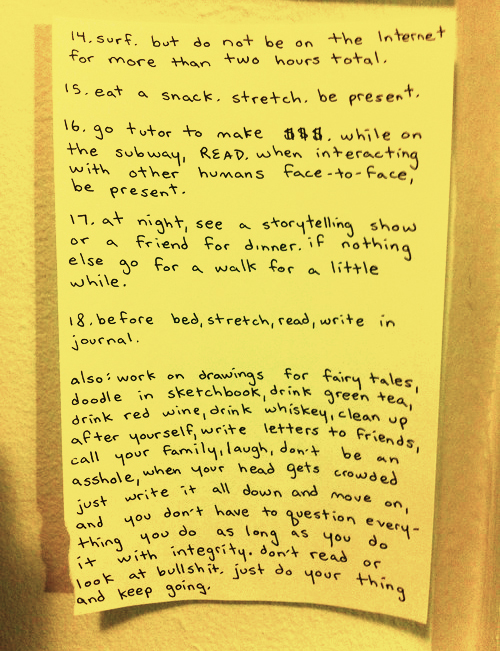 14. surf. but do not be on the Internet
for more than two hours total.
15. eat a snack. stretch. be present.
16. go tutor to make $$$. while on
the subway, READ. when interacting
with other humans face-to-face,
be present.
17. at night, see a storytelling show
or a friend for dinner. if nothing
else go for a walk for a little
while.
18. before bed, stretch, read, write in
journal.
also: work on drawings for fairy tales,
doodle in sketchbook, drink green tea,
drink red wine, drink whiskey, clean up
after yourself, write letters to friends,
call your family, laugh, don't be an
asshole, when your head gets crowded
just write it all down and move on,
and you don't have to question every-
thing you do as long as you do
it with integrity. don't read or
look at bullshit. just do your thing
and keep going.